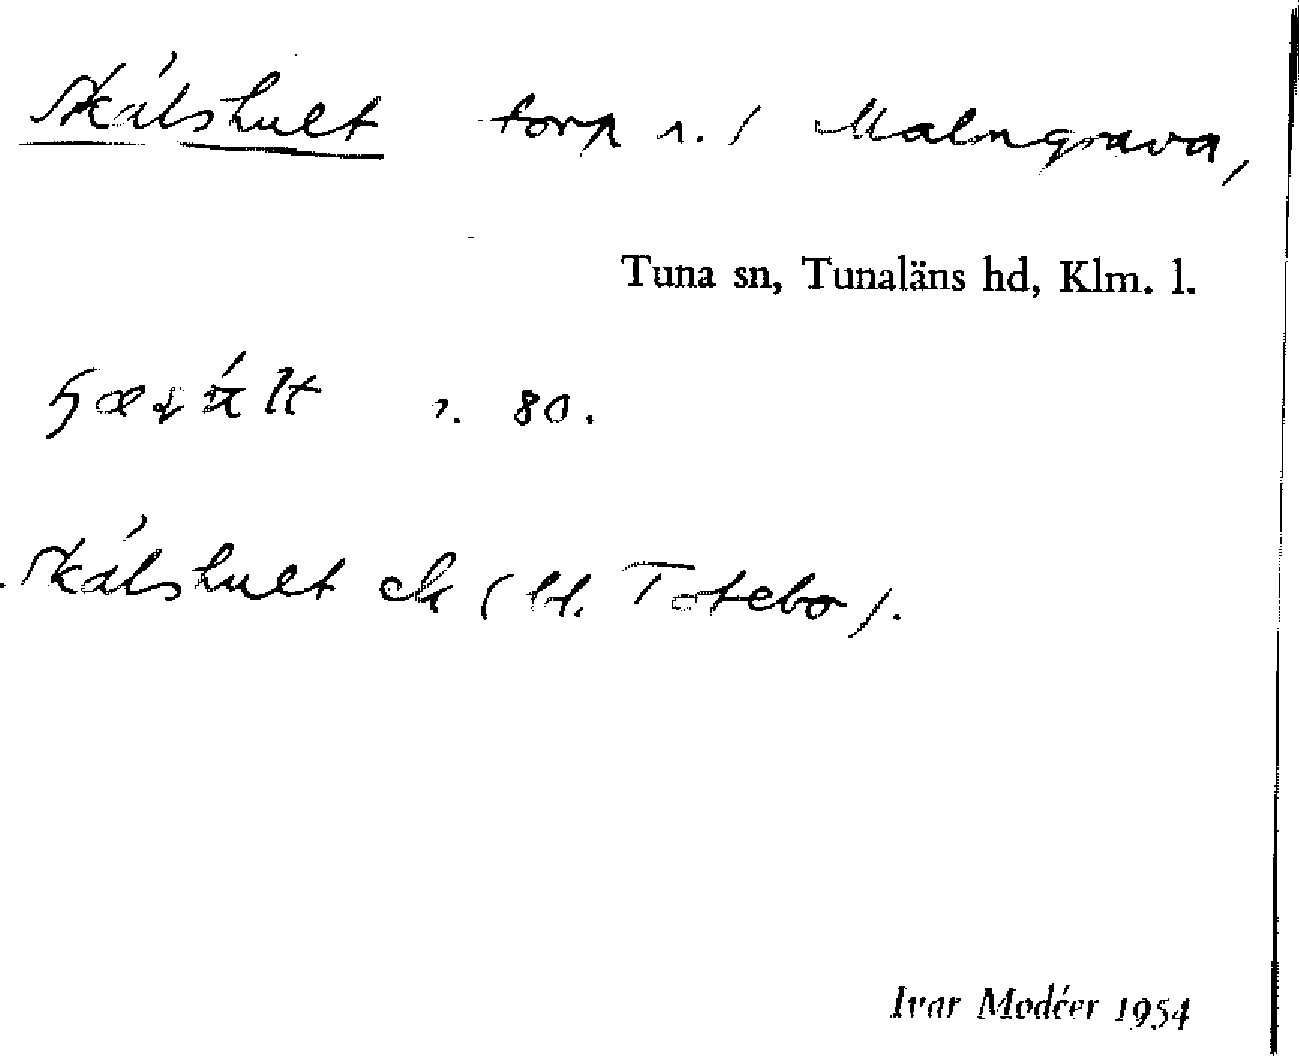 Skálshult torp n. / Malmgrava,
Tuna sn, Tunaläns hd, Klm. l.
s. 80.
Skálshult ck (bl. Totebo).
Ivar Modéer 1954